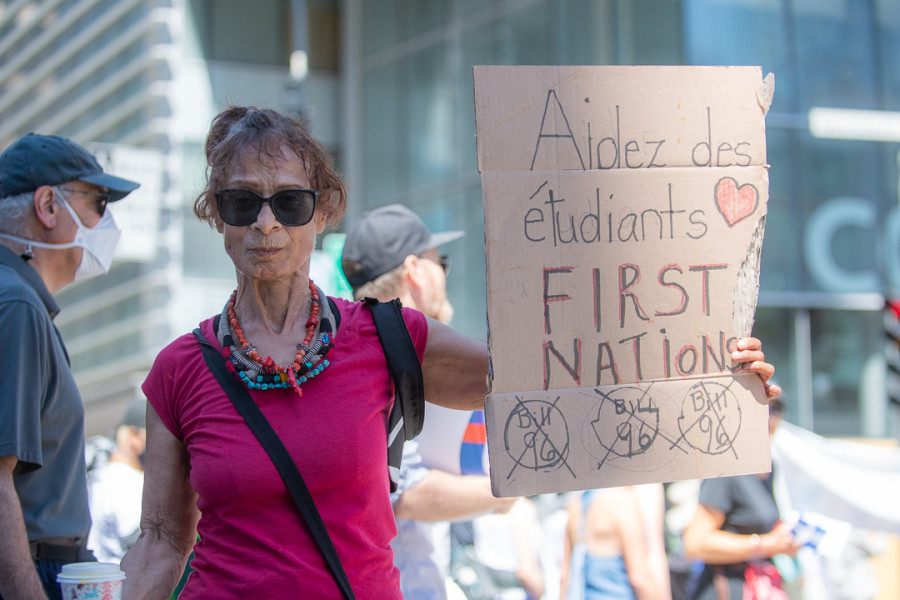 Aidez des
étudiants
FIRST
NATIONS
Bill Bill Bill
96 96 96
C